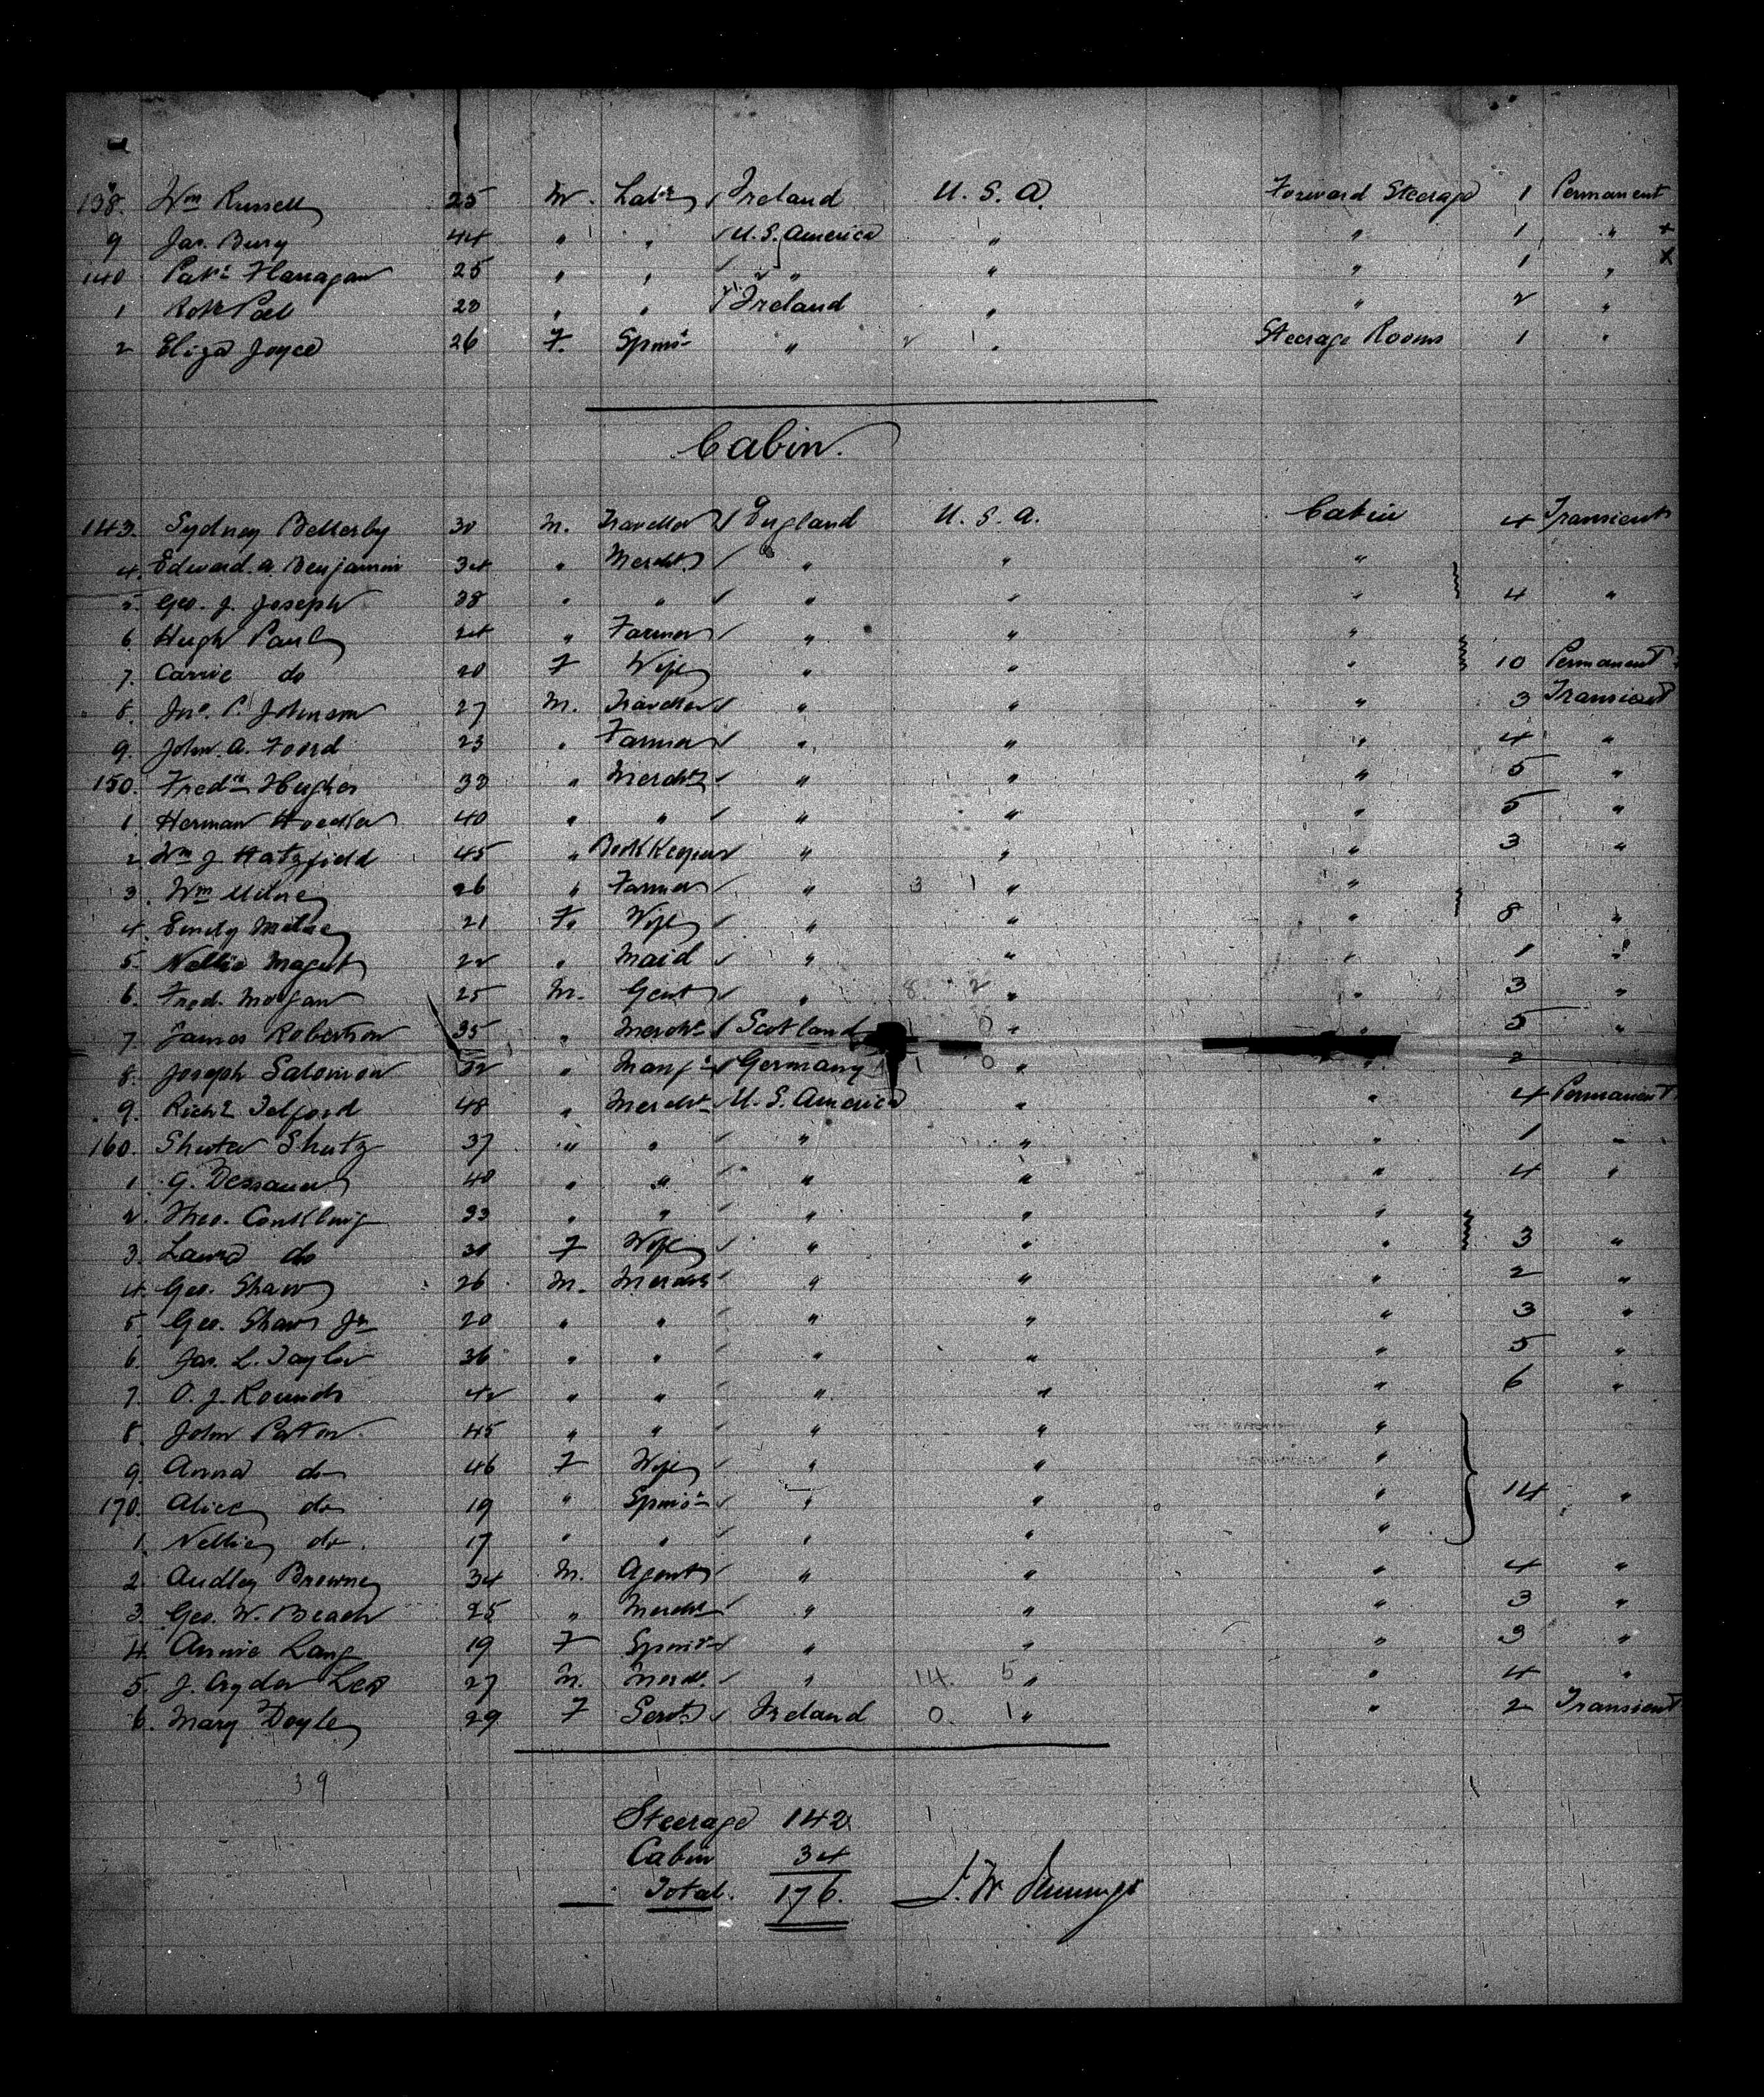 138. Wm Russell 25 M. Labr Ireland U. S. A. Forward Steerage 1 Permanent
9 Jas. Bury 44 " " U.S. America " " 1 " +
140 Patk Flanagan 25 " " " " " 1 " X
1 Robt 20 " " Ireland " " 2 "
2 Eliza Joyce 26 F. Spinsr " 2 1 " Steerage Rooms 1 "
Cabin.
143. Sydney Betterby 30 M. Traveller England U. S. A. Cabin 4 Transient
4. Edward. A. Benjamin 34 " Mercht " " "
5. Geo. J. Joseph 38 " " " " " 4 "
6. Hugh Paul 24 " Farmer " " "
7. Carrie do 20 F Wife " " " 10 Permanent
8. Jno. P. Johnson 27 M. Traveller " " " 3 Transient
9. John. A. Foord 23 " Farmer " " " 4 "
150. Fredk Hughes 33 " Mercht " " " 5 "
1. Herman 40 " " " " " 5 "
2. Wm J Hatzfield 45 " Book Keeper " " " 3 "
3. Wm Milne 26 " Farmer " 3 1 " "
4. Emily Milne 21 F. Wife " " " 8 "
5. Nellie 22 " Maid " " " 1 "
6. Fred. Morgan 25 M. Gent " 8. 2 " " 3 "
7. James Robertson 35 " Mercht Scotland 1 0 " " 5 "
8. Joseph Salomon 32 " Manfr Germany 1 0 " 2
9. Richd Telford 48 " Mercht U. S. America " " 4 Permanent
160. Shuter Shutz 37 " " " " " 1 "
1. G. Dessauer 40 " " " " " 4 "
2. Theo. Conkling 33 " " " " "
3. Laura do 30 F Wife " " " 3 "
4. Geo. Shaw 26 M. Mercht " " " 2 "
5. Geo. Shaw Jr 20 " " " " " 3 "
6. Jas. L. Taylor 36 " " " " " 5 "
7. O. J. Rounds 42 " " " " " 6 "
8. John Paton 45 " " " " "
9. Anna do 46 F Wife " " "
170. Alice do 19 " Spinsr " " " 14 "
1. Nellie do. 17 " " " " "
2. Audley Browne 34 M. Agent " " " 4 "
3. Geo. W. Beach 25 " Mercht " " " 3 "
4. Annie Lang 19 F Spinsr " " " 3 "
5. J. Lea 27 M. Mercht. " 14. 5 " " 4 "
6. Mary Doyle 29 F Servt Ireland 0. 1 " " 2 Transient
39
Steerage 142
Cabin 34
Total. 176. J. W. Jennings